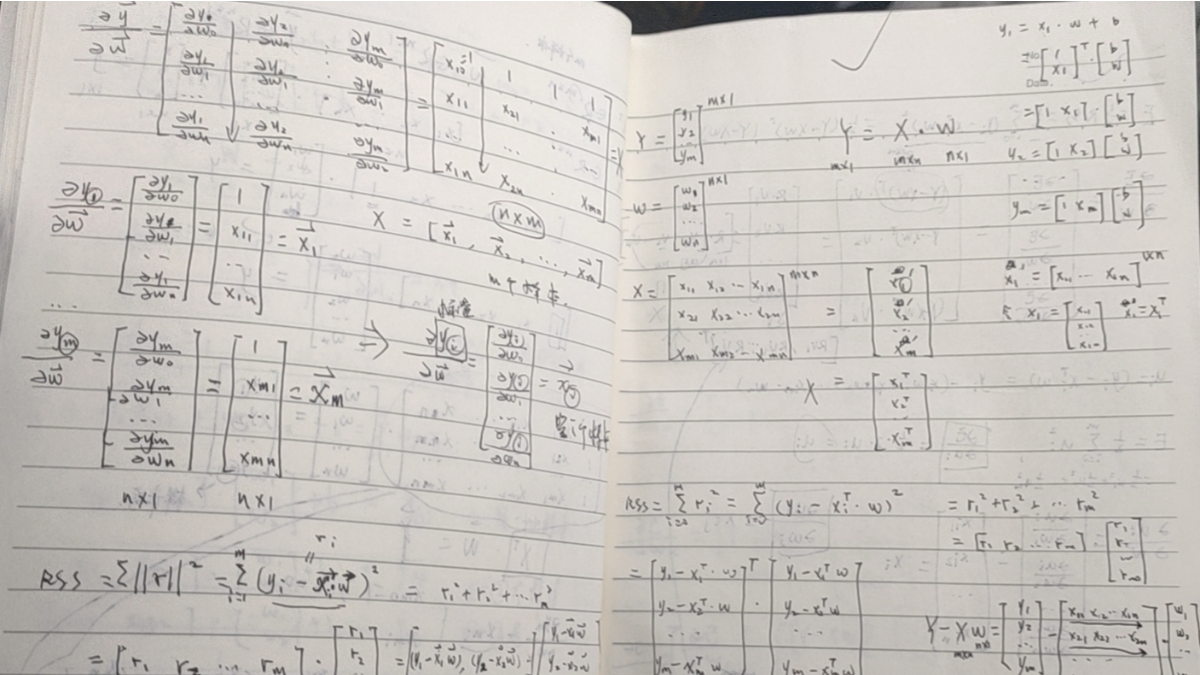 ∂y⃗/∂w⃗ = [∂y₁/∂w₀ ∂y₂/∂w₀ ⋮ ∂yₘ/∂w₀; ∂y₁/∂w₁ ∂y₂/∂w₁ ⋮ ∂yₘ/∂w₁; ...; ∂y₁/∂wₙ ∂y₂/∂wₙ ∂yₘ/∂wₙ] = [x₁₀=1 1 1 1; x₁₁ x₂₁ ... xₘ₁; ...; x₁ₙ x₂ₙ ... xₘₙ] = X
∂y₁/∂w⃗ = [∂y₁/∂w₀; ∂y₁/∂w₁; ...; ∂y₁/∂wₙ] = [1; x₁₁; ...; x₁ₙ] = x⃗₁
X = [x⃗₁, x⃗₂, ..., x⃗ₘ] n×m
...
∂yₘ/∂w⃗ = [∂yₘ/∂w₀; ∂yₘ/∂w₁; ...; ∂yₘ/∂wₙ] = [1; xₘ₁; ...; xₘₙ] = x⃗ₘ
⇒ ∂yᵢ/∂w⃗ = [∂yᵢ/∂w₀; ∂yᵢ/∂w₁; ...; ∂yᵢ/∂wₙ] = x⃗ᵢ
n×1 n×1
rᵢ
RSS = Σ||r||² = Σᵢ₌₁ᵐ (yᵢ - x⃗ᵢᵀw⃗)² = r₁² + r₂² + ... rₘ²
= [r₁ r₂ ... rₘ] · [r₁; r₂
y₁ = x₁ · w + b
= [1; x₁]ᵀ · [b; w]
= [1 x₁] · [b; w]
y₂ = [1 x₂] [b; w]
yₘ = [1 xₘ] [b; w]
Y = [y₁; y₂; ...; yₘ] m×1
Y = X · w
m×1 m×n n×1
w = [w₁; w₂; ...; wₙ] n×1
X = [x₁₁ x₁₂ ... x₁ₙ; x₂₁ x₂₂ ... x₂ₙ; xₘ₁ xₘ₂ ... xₘₙ] m×n = [x₁'; x₂'; ...; xₘ']
x₁' = [x₁₁ ... x₁ₙ] 1×n
X = [x₁ᵀ; x₂ᵀ; ...; xₘᵀ]
RSS = Σᵢ₌₀ᵐ rᵢ² = Σᵢ₌₀ᵐ (yᵢ - xᵢᵀ · w)² = r₁² + r₂² + ... rₘ²
= [r₁ r₂ ... rₘ] · [r₁; r₂; ...; rₘ]
= [y₁ - x₁ᵀ · w; y₂ - x₂ᵀ · w; ...; yₘ - xₘᵀ w]ᵀ · [y₁ - x₁ᵀ w; y₂ - x₂ᵀ w; ...; yₘ - xₘᵀ w]
Y - Xw = [y₁; y₂; ...; yₘ] - [x₁₁ x₁₂ ... x₁ₙ; x₂₁ x₂₂ ... x₂ₙ; ...] · [w₁; w₂; ...